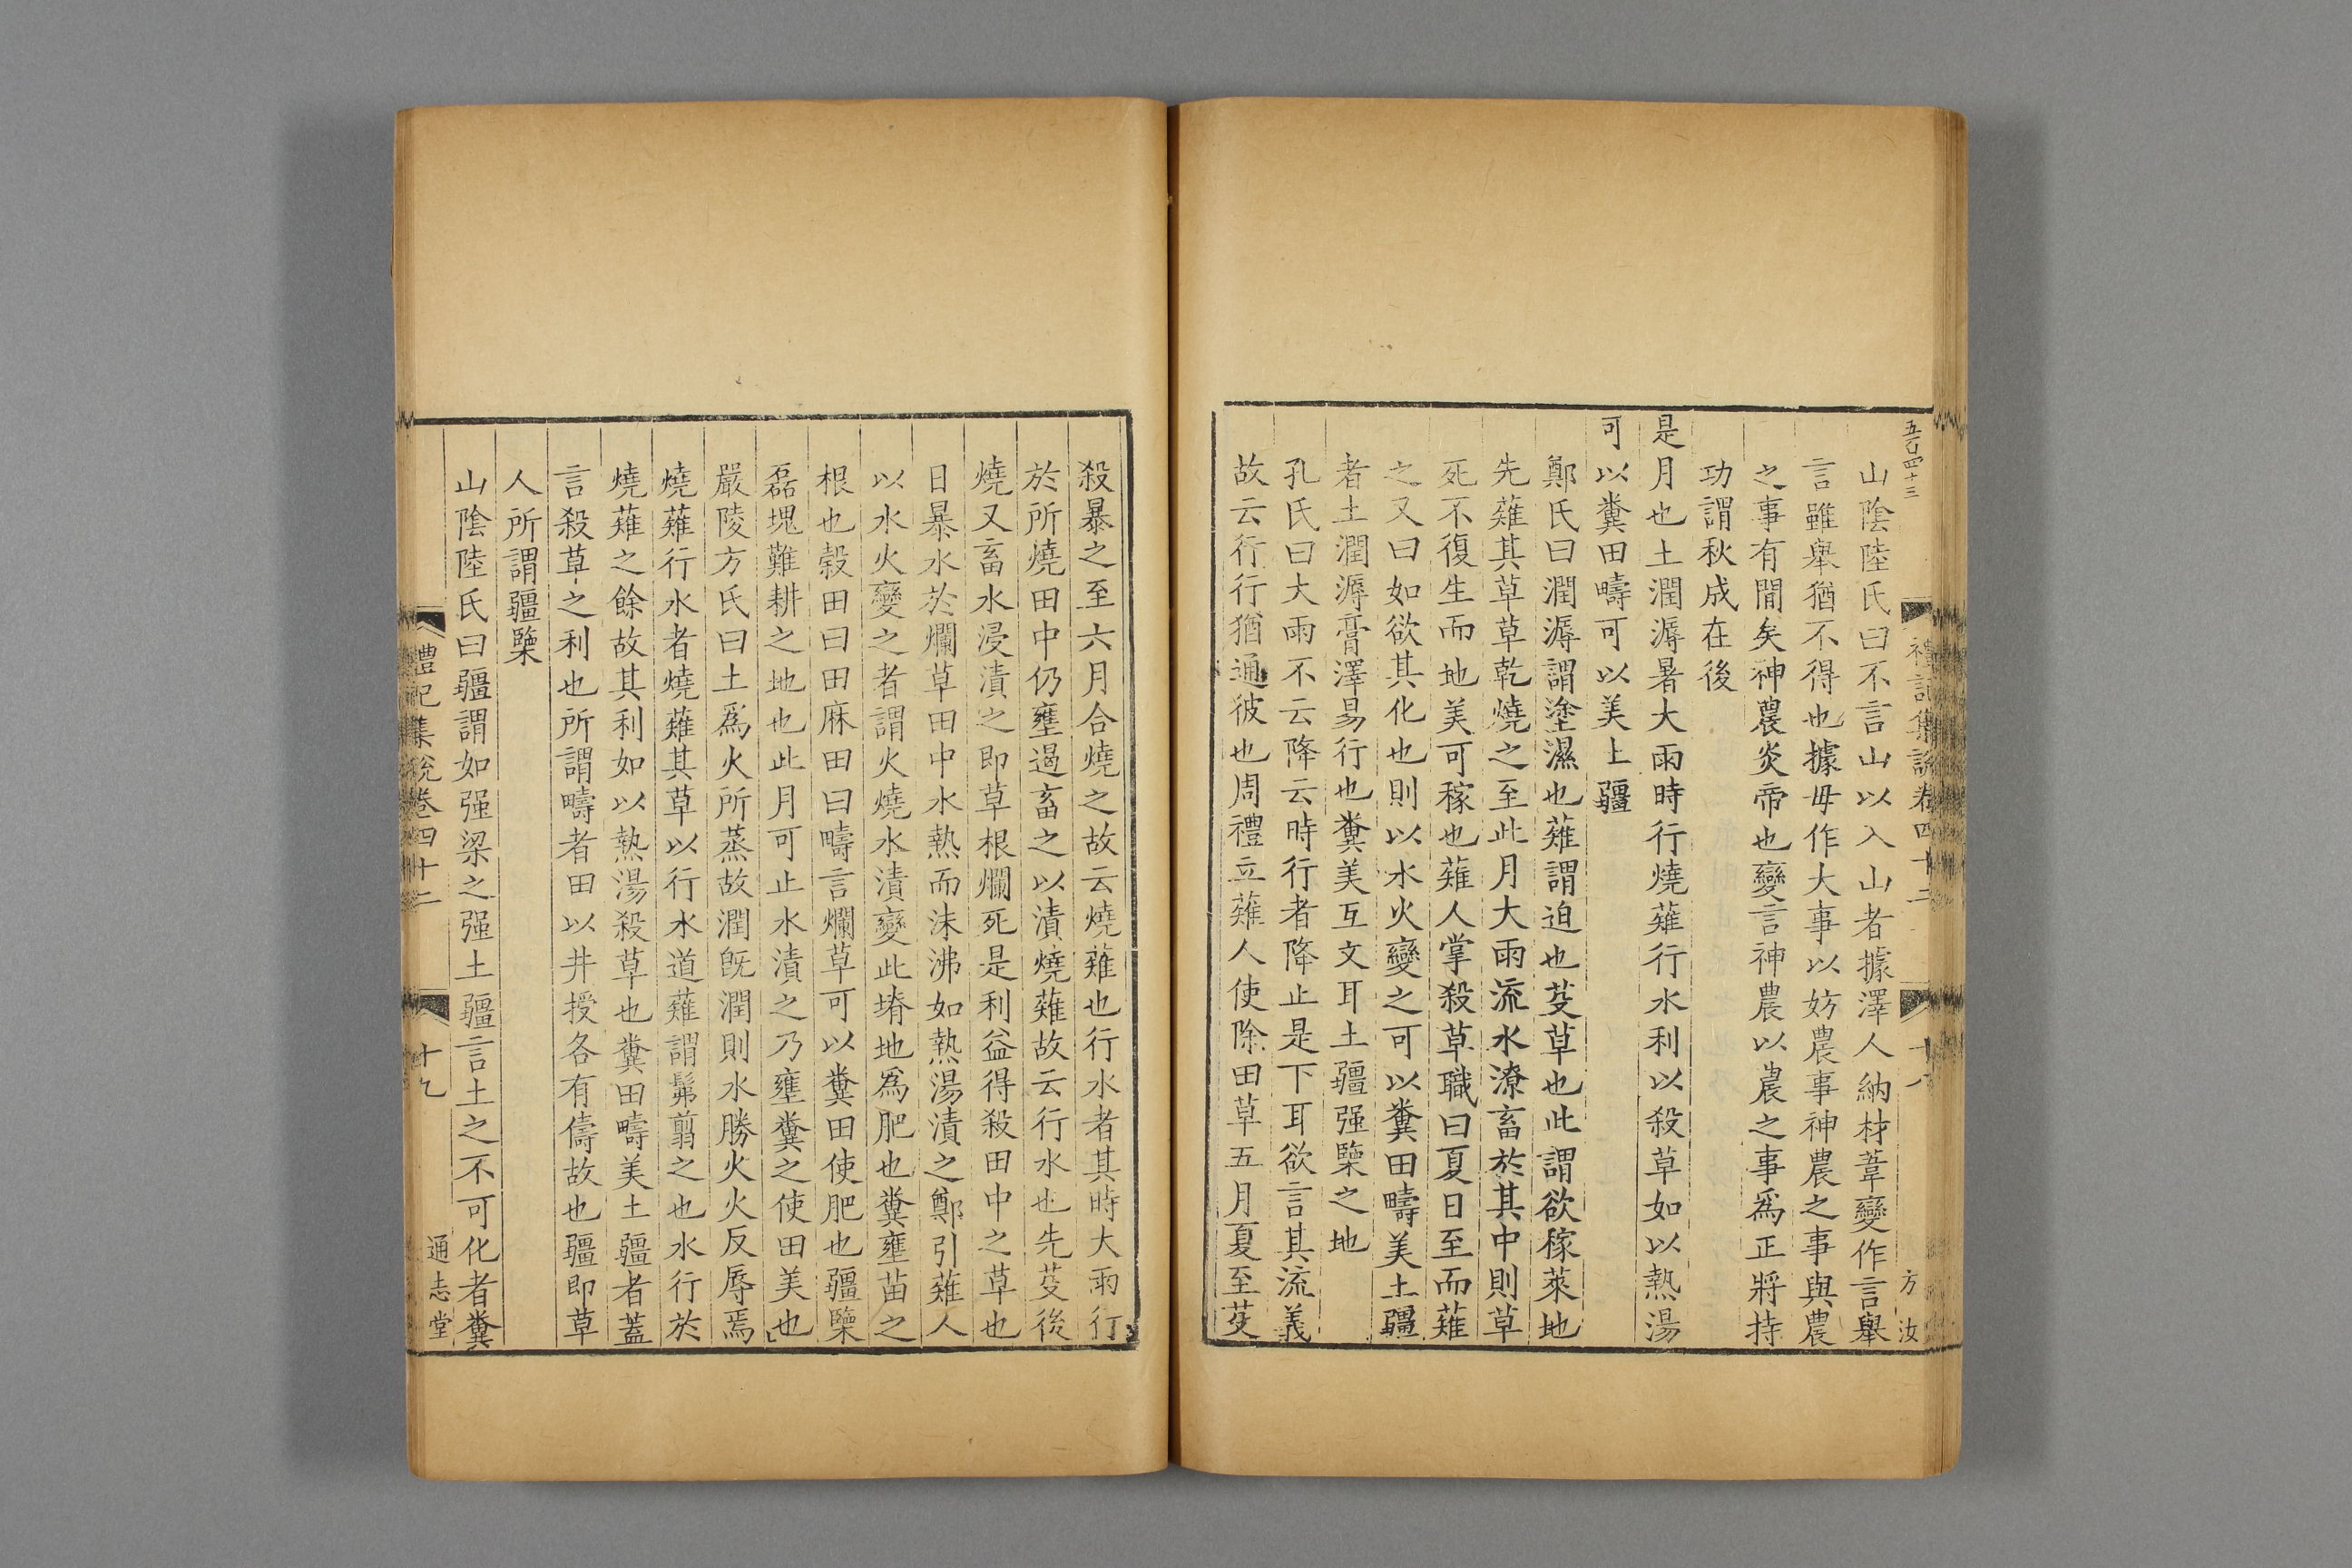 五百四十三
禮記集說卷四十二
十八
方汝
山陰陸氏曰不言山以入山者據澤人納材葦變作言舉
言雖舉猶不得也據毋作大事以妨農事神農之事與農
之事有閒矣神農炎帝也變言神農以農之事爲正將持
功謂秋成在後
是月也土潤溽暑大雨時行燒薙行水利以殺草如以熱湯
可以糞田疇可以美土疆
鄭氏曰潤溽謂塗濕也薙謂迫也芟草也此謂欲稼萊地
先薙其草草乾燒之至此月大雨流水潦畜於其中則草
死不復生而地美可稼也薙人掌殺草職曰夏日至而薙
之又曰如欲其化也則以水火變之可以糞田疇美土疆
者土潤溽膏澤易行也糞美互文耳土疆强㯺之地
孔氏曰大雨不云降云時行者降止是下耳欲言其流義
故云行行猶通彼也周禮立薙人使除田草五月夏至芟
殺暴之至六月合燒之故云燒薙也行水者其時大雨行
於所燒田中仍壅遏畜之以漬燒薙故云行水也先芟後
燒又畜水浸漬之即草根爛死是利益得殺田中之草也
日暴水於爛草田中水熱而沫沸如熱湯漬之鄭引薙人
以水火變之者謂火燒水漬變此塉地爲肥也糞壅苗之
根也穀田曰田麻田曰疇言爛草可以糞田使肥也疆㯺
磊塊難耕之地也此月可止水漬之乃壅糞之使田美也
嚴陵方氏曰土爲火所蒸故潤旣潤則水勝火火反辱焉
燒薙行水者燒薙其草以行水道薙謂髴翦之也水行於
燒薙之餘故其利如以熱湯殺草也糞田疇美土疆者蓋
言殺草之利也所謂疇者田以井授各有儔故也疆即草
人所謂疆㯺
山陰陸氏曰疆謂如强梁之强土疆言土之不可化者糞
禮記集說卷四十二
十九
通志堂